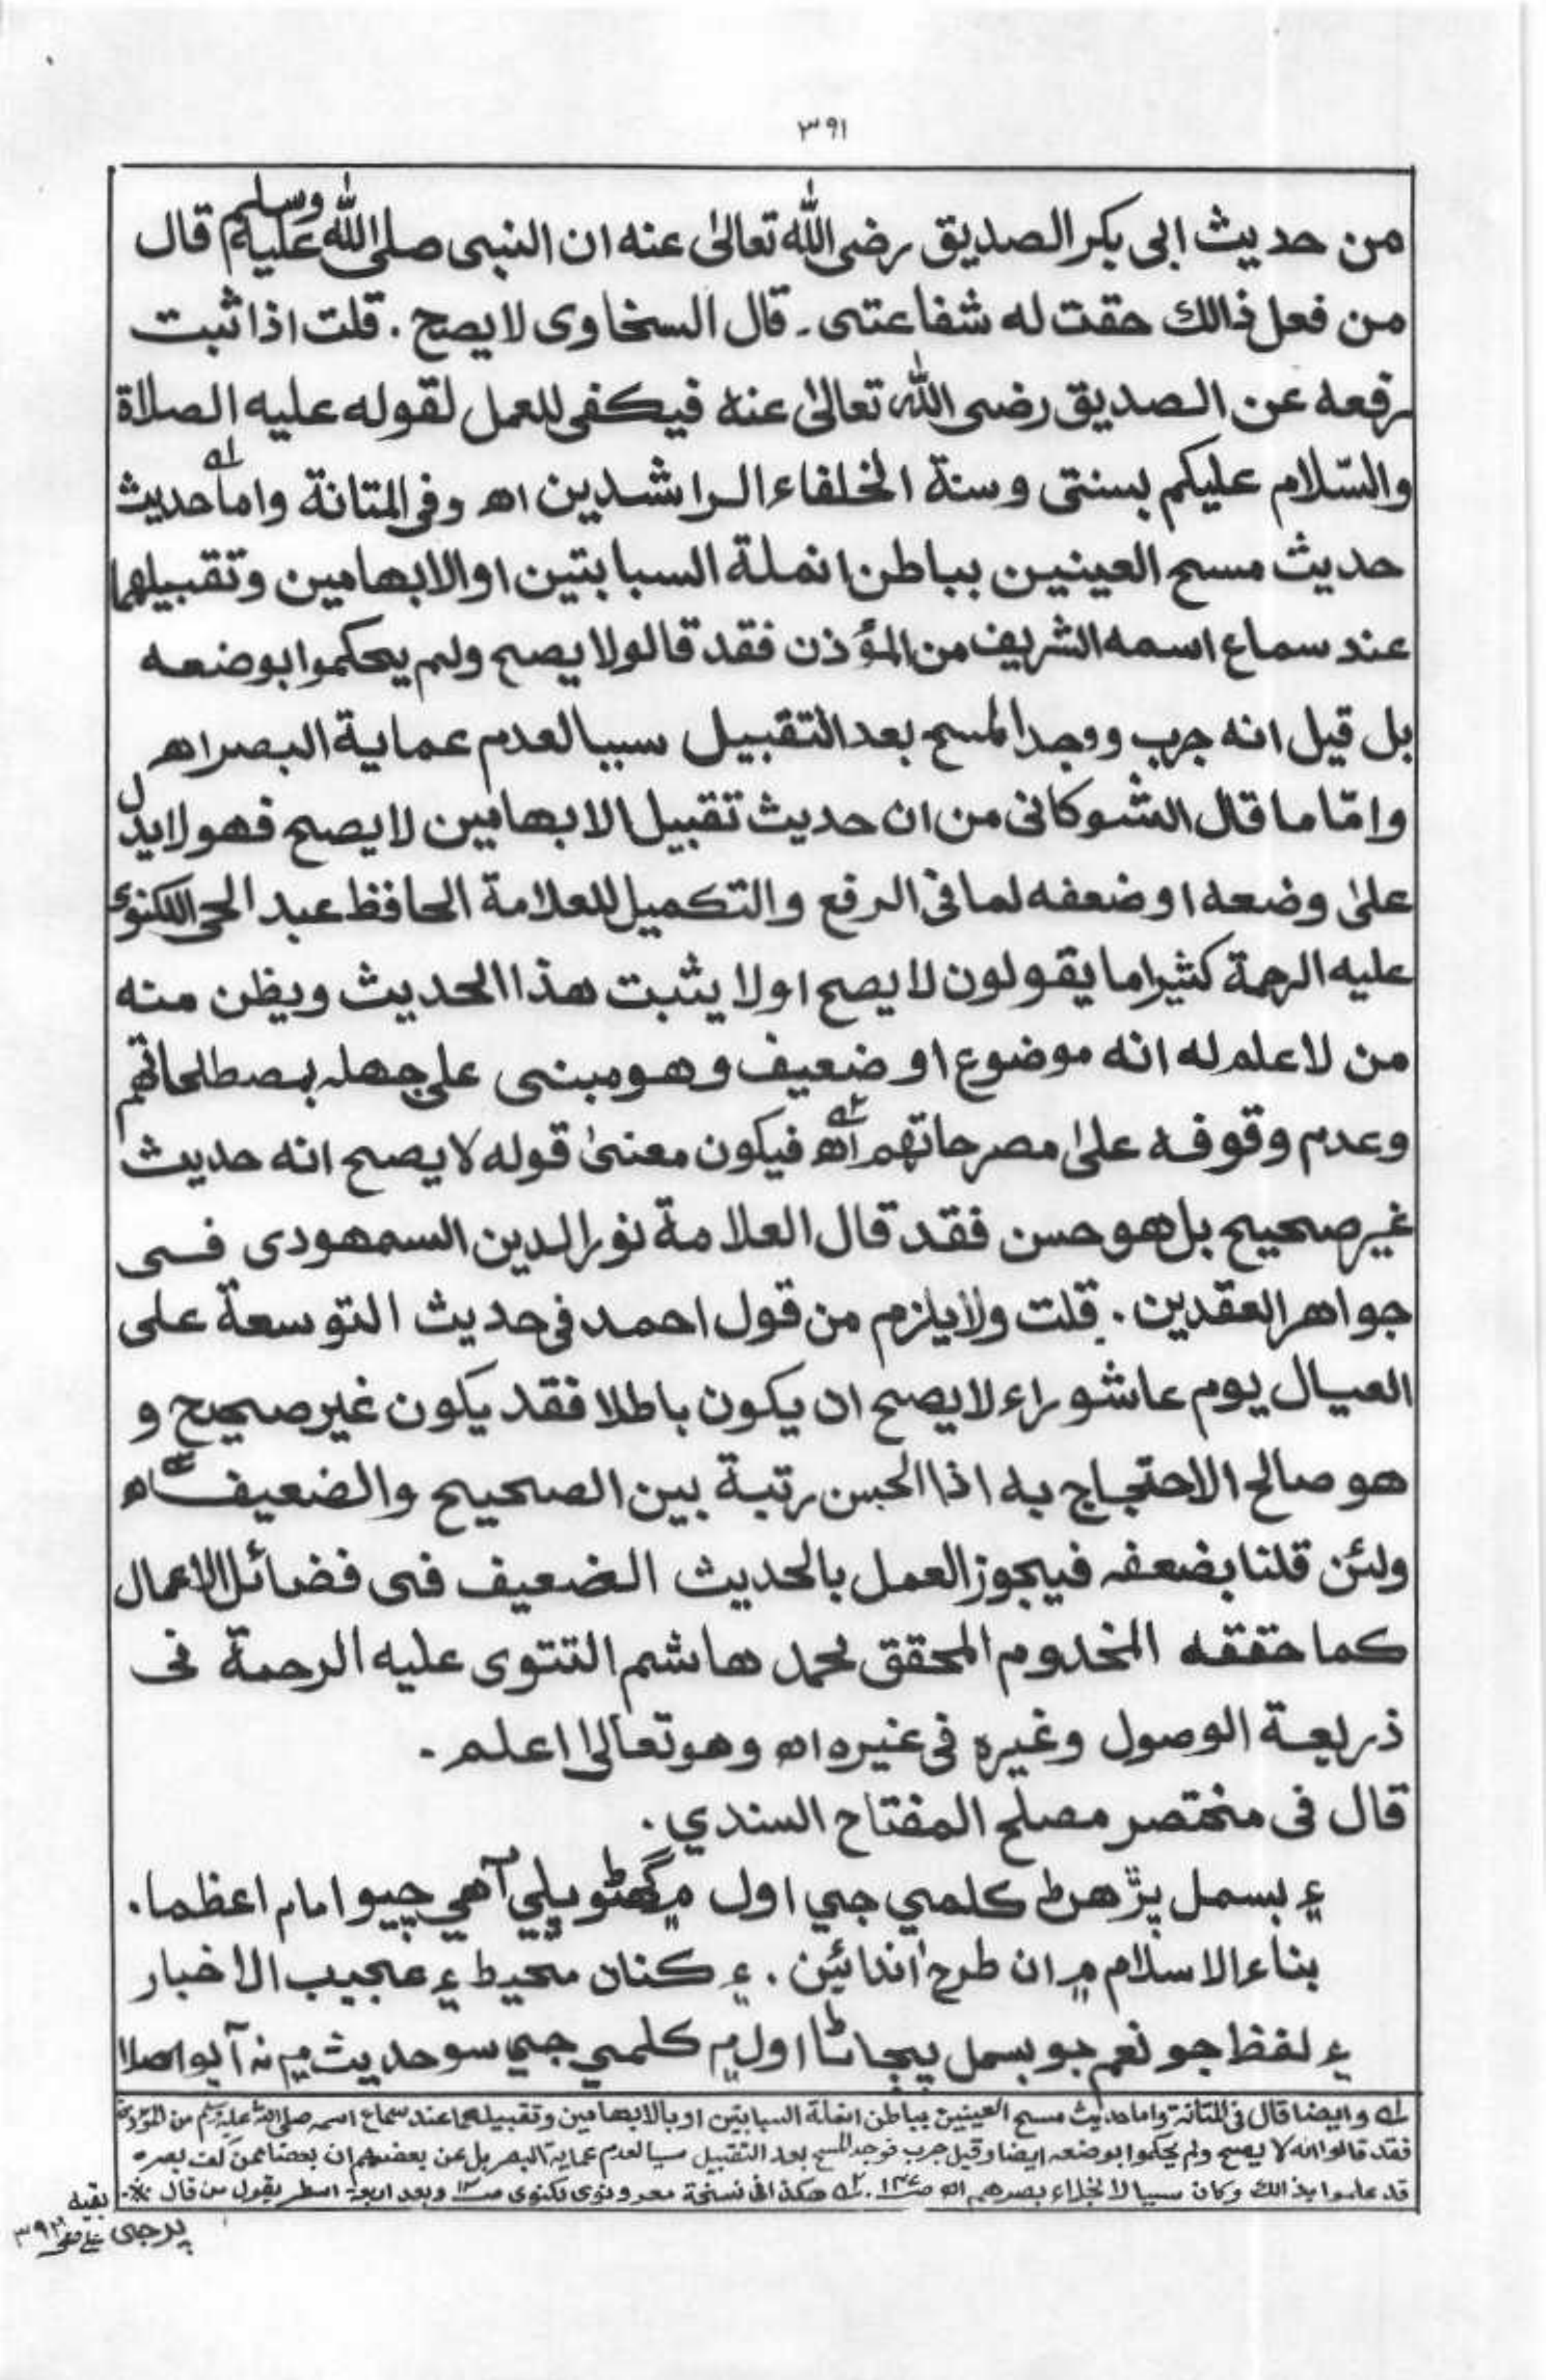 ٣٩١
من حديث ابى بكر الصديق رضى الله تعالىٰ عنه ان النبى صلى الله عليه وسلم قال
من فعل ذالك حقت له شفاعتى ـ قال السخاوى لا يصح . قلت اذا ثبت
رفعه عن الصديق رضى الله تعالىٰ عنه فيكفى للعمل لقوله عليه الصلاة
والسّلام عليكم بسنتى وسنة الخلفاء الراشدين اھ وفى المتانة واما حديث
حديث مسح العينين بباطن انملة السبابتين او الابهامين وتقبيلهما
عند سماع اسمه الشريف من المؤذن فقد قالو لا يصح ولم يحكموا بوضعه
بل قيل انه جرب ووجد المسح بعد التقبيل سببا لعدم عماية البصر اھ
وامّا ما قال الشوكانى من ان حديث تقبيل الابهامين لا يصح فهو لا يدل
علىٰ وضعه او ضعفه لما فى الرفع والتكميل للعلامة الحافظ عبد الحى اللكنوى
عليه الرحمة كثيرا ما يقولون لا يصح او لا يثبت هذا الحديث ويظن منه
من لا علم له انه موضوع او ضعيف وهو مبنى على جهله بمصطلحاتهم
وعدم وقوفه علىٰ مصرحاتهم اھ فيكون معنىٰ قوله لا يصح انه حديث
غير صحيح بل هو حسن فقد قال العلامة نور الدين السمهودى فى
جواهر العقدين . قلت ولا يلزم من قول احمد فى حديث التوسعة على
العيال يوم عاشوراء لا يصح ان يكون باطلا فقد يكون غير صحيح و
هو صالح الاحتجاج به اذا الحسن رتبة بين الصحيح والضعيف اھ
ولئن قلنا بضعفه فيجوز العمل بالحديث الضعيف فى فضائل الاعمال
كما حققه المخدوم المحقق محمد هاشم التتوى عليه الرحمة فى
ذريعة الوصول وغيره فى غيره اھ وهو تعالىٰ اعلم ـ
قال فى مختصر مصلح المفتاح السندي .
۽ بسمل پڙهڻ ڪلمي جي اول ۾ گهڻو ڀلي آهي چيو امام اعظما.
بناء الاسلام ۾ ان طرح آندائين . ۽ ڪنان محيط ۽ عجيب الاخبار
۽ لفظ جو نعم جو بسمل پڄاڻا اول ۾ ڪلمي جي سو حديث ۾ نه آيو اصلا
له وايضا قال فى المتانة واما حديث مسح العينين بباطن انملة السبابتين او بالابهامين وتقبيلهما عند سماع اسمه صلى الله عليه وسلم من المؤذن
فقد قالوا انه لا يصح ولم يحكموا بوضعه ايضا وقيل جرب فوجد المسح بعد التقبيل سببا لعدم عماية البصر بل عن بعضهم ان بعضا ممن كف بصره
قد عاموا بذالك وكان سببا لانجلاء بصرهم اھ . ٢ه هكذا فى نسخة وبعد اربعة اسطر يقول من قال
بقيه
پرچي صفحى ٣٩٢